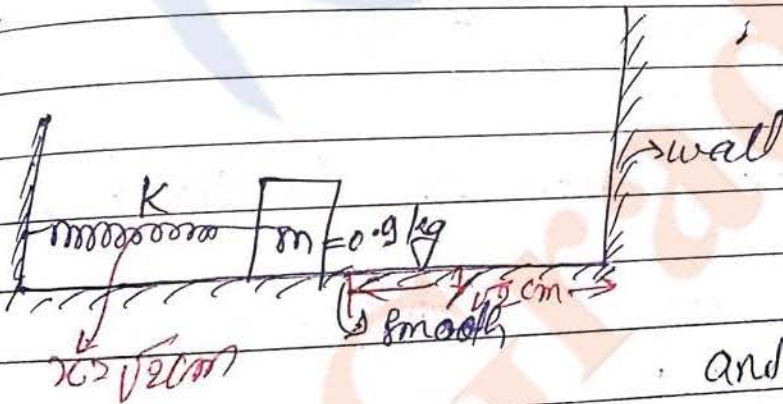 wall
K
m = 0.9 kg
√2 cm
smooth
x = √2 cm
and